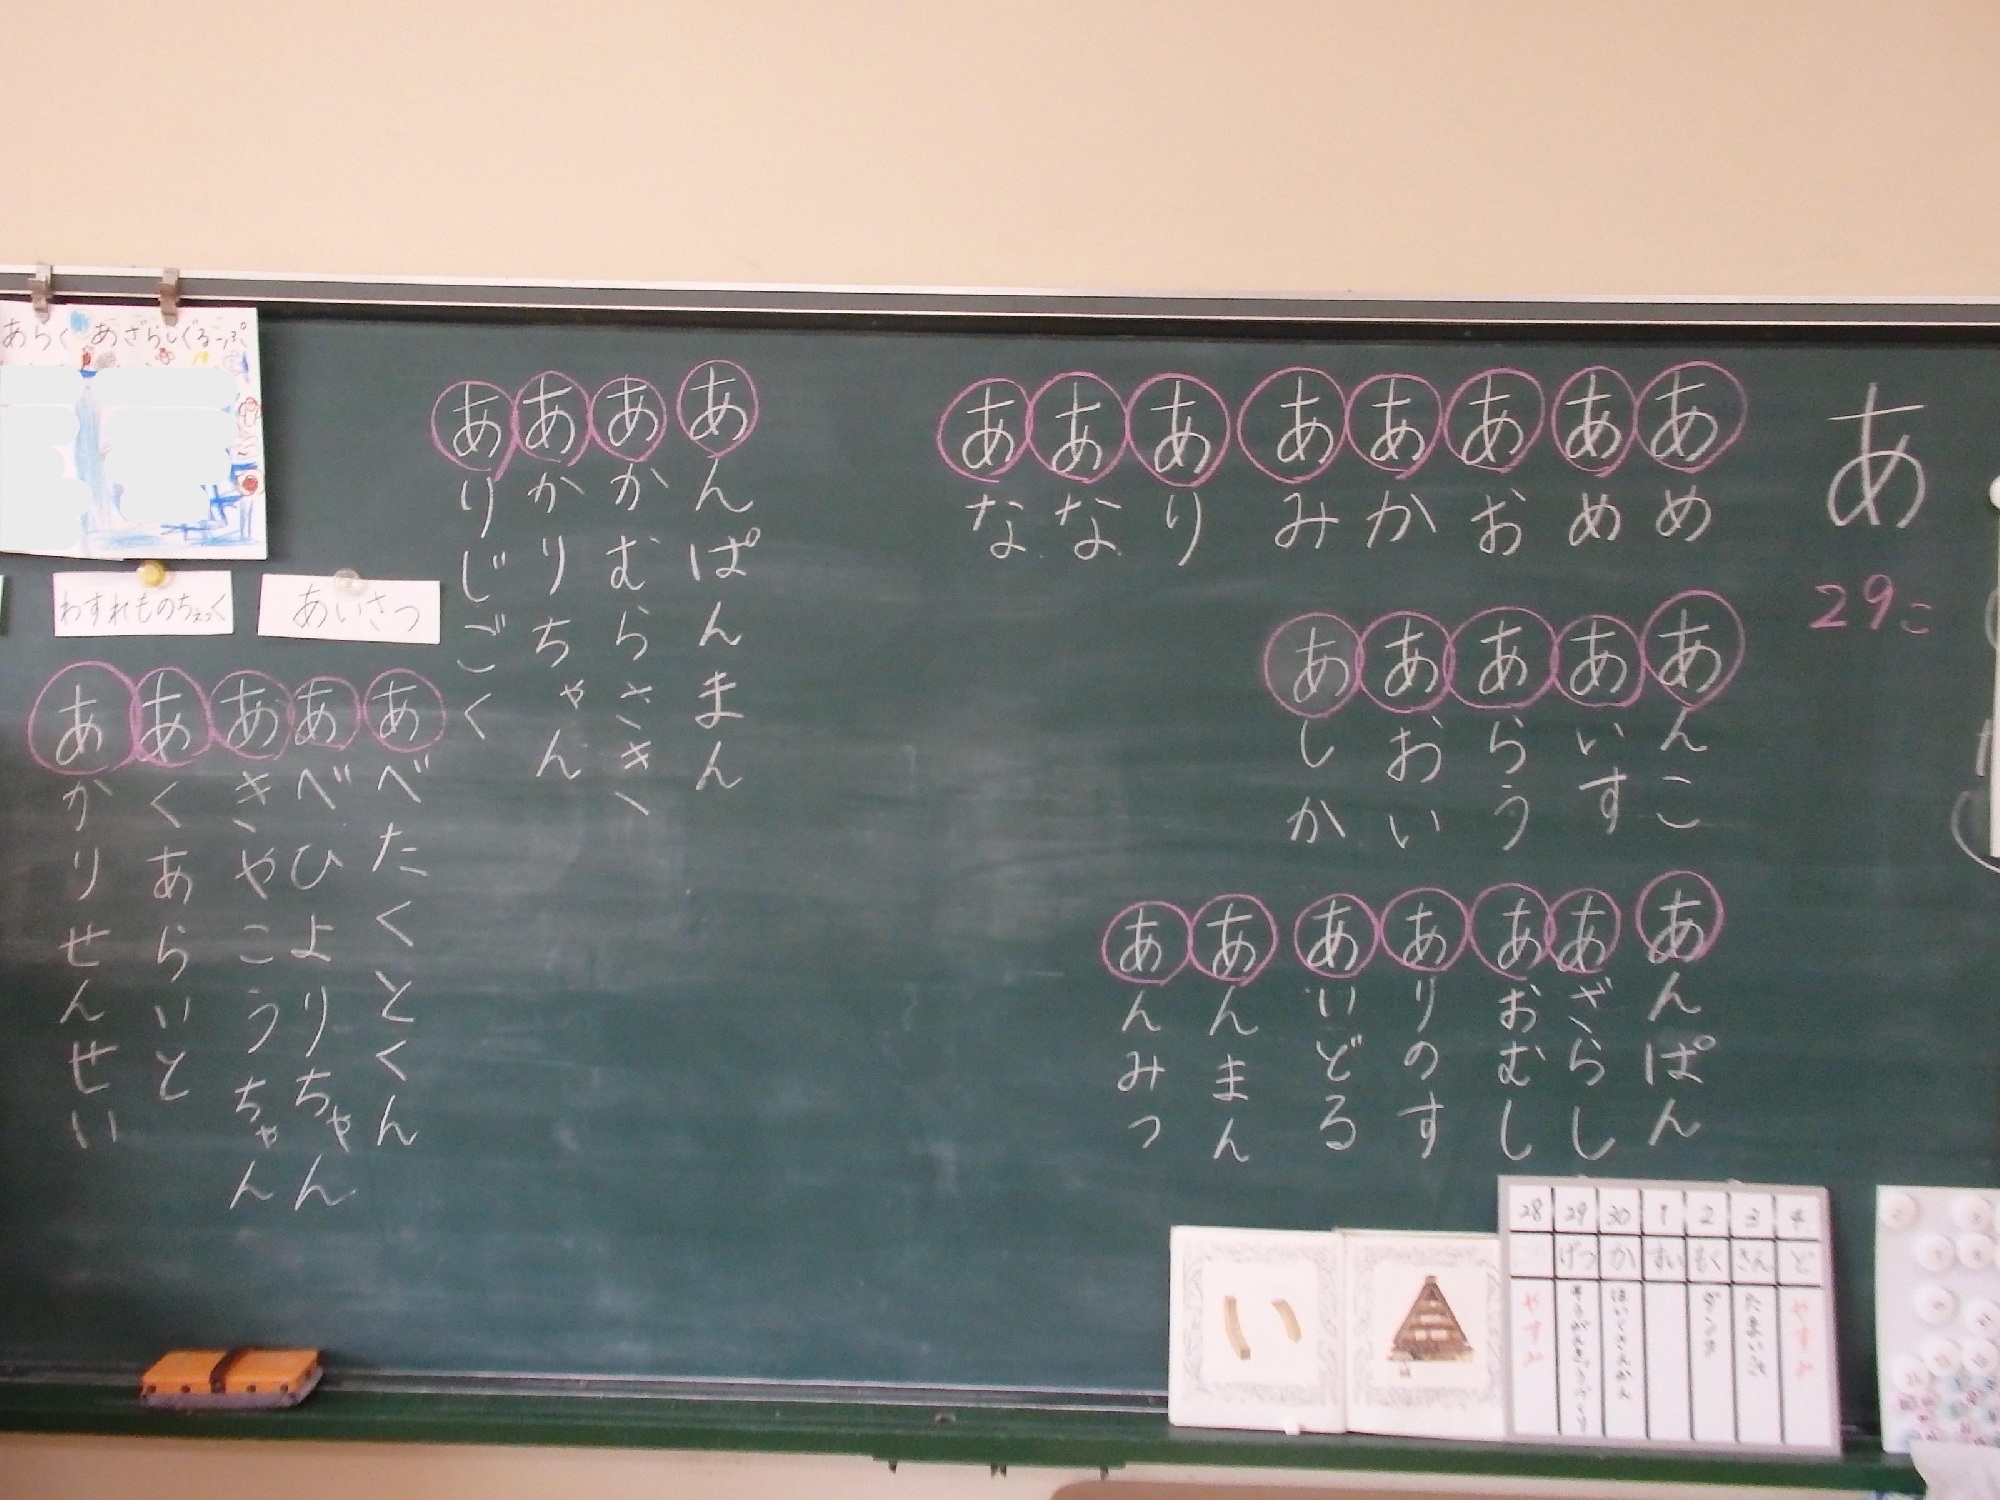 あ
29こ
あめ
あめ
あお
あか
あみ
あり
あな
あな
あんこ
あいす
あらう
あおい
あしか
あんぱん
あざらし
あおむし
ありのす
あいどる
あんまん
あんみつ
あんぱんまん
あかむらさき
あかりちゃん
ありじごく
あべたくとくん
あべひよりちゃん
あきやこうちゃん
あくあらいと
あかりせんせい
あらく あざらしぐるーぷ
わすれものちぇっく
あいさつ
い
28 29 30 1 2 3 4
げつ か すい もく きん ど
やすみ
はいくさんかん
やすみ